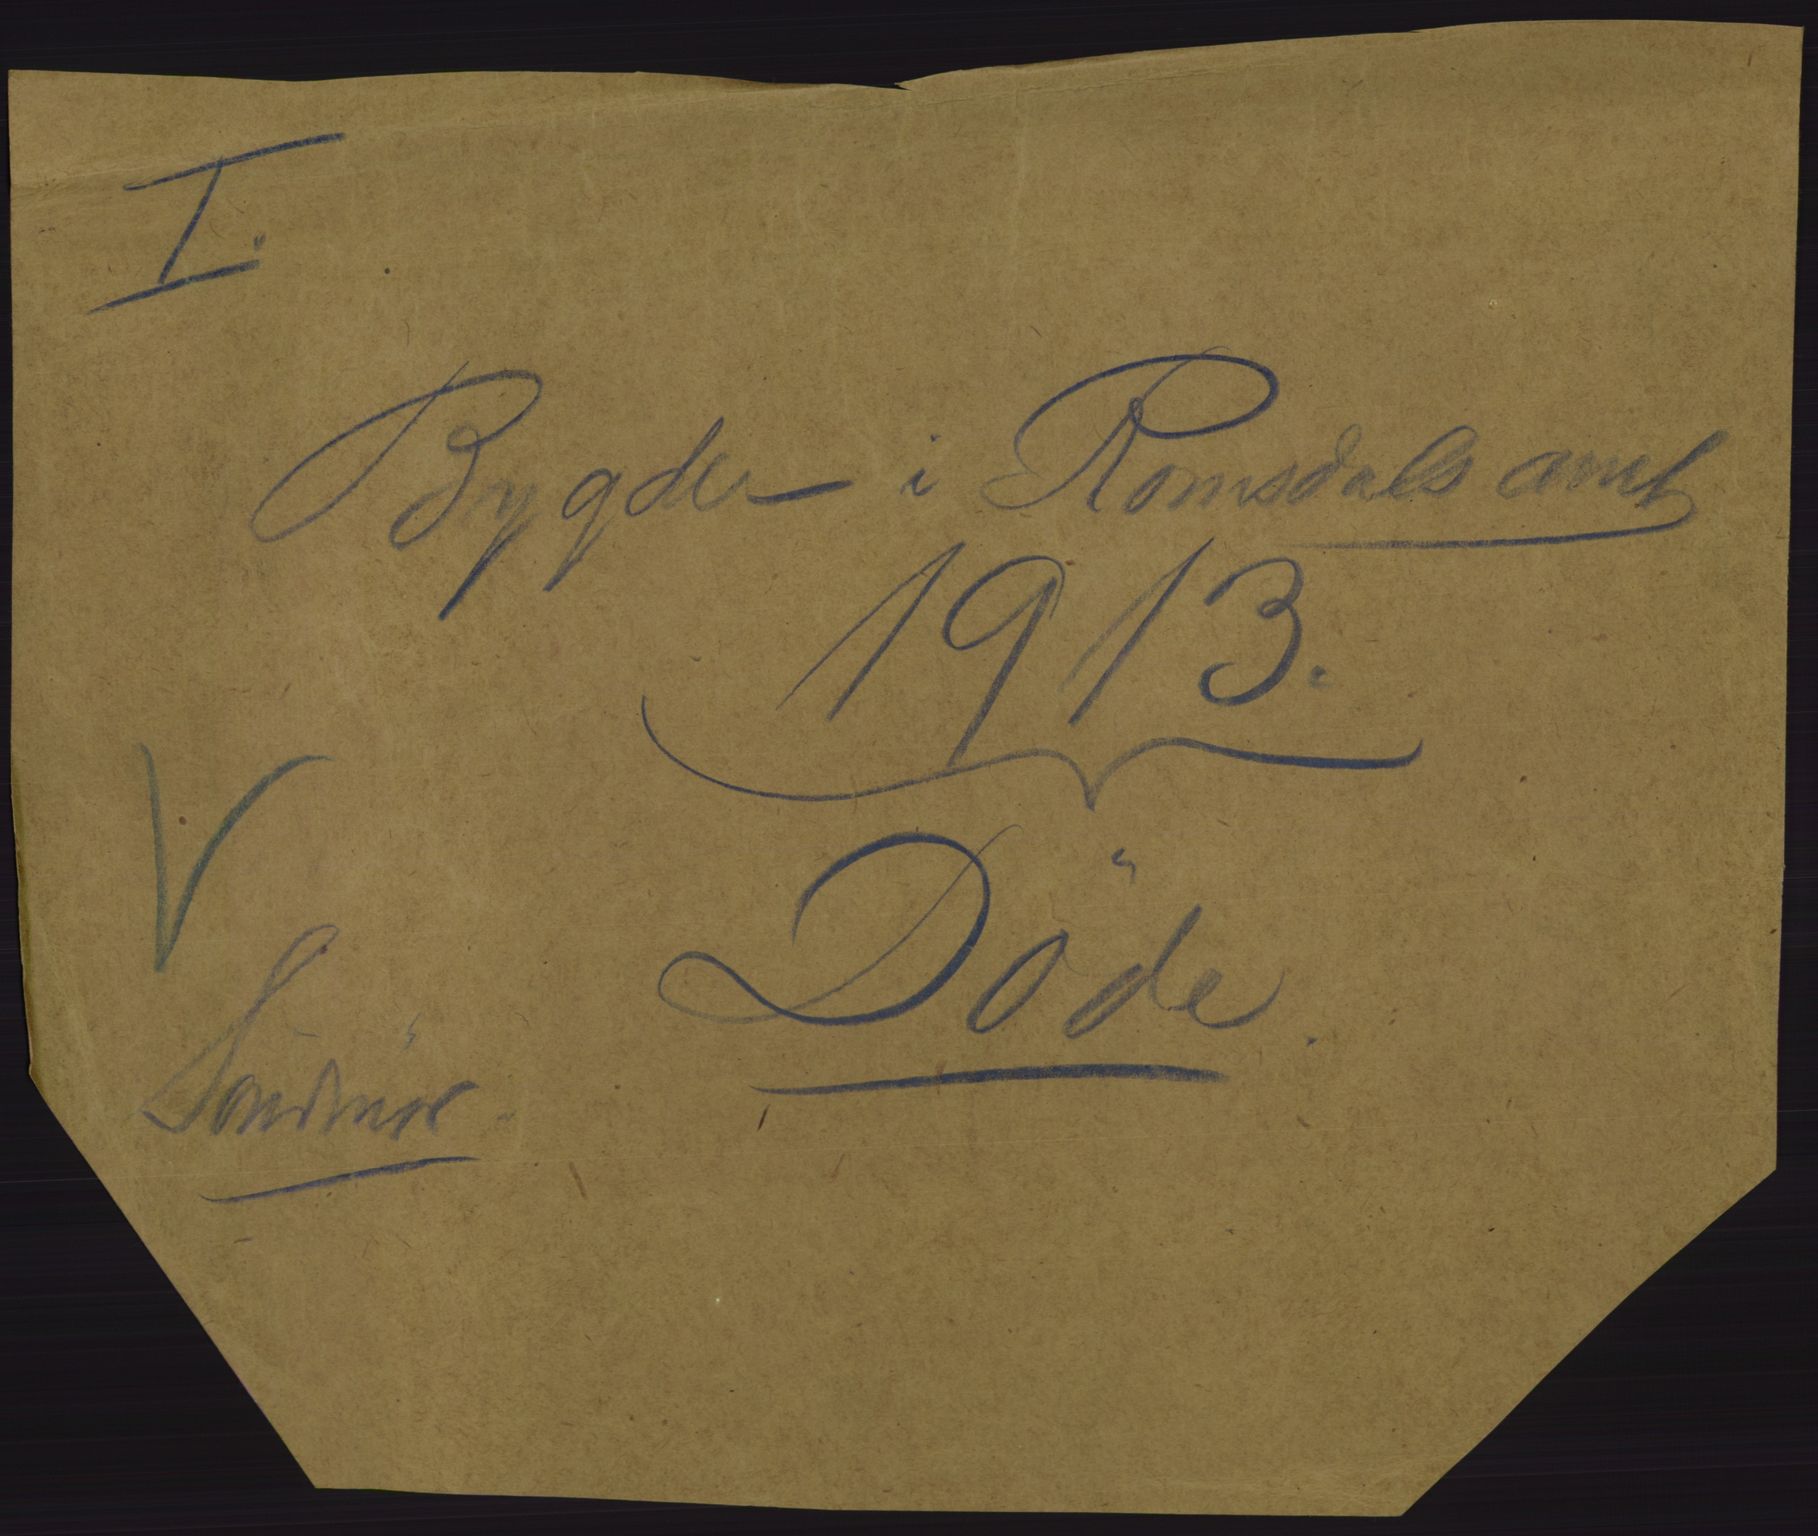 I.
Bygder i Romsdals amt
1913.
V
Döde.
Söndmör.